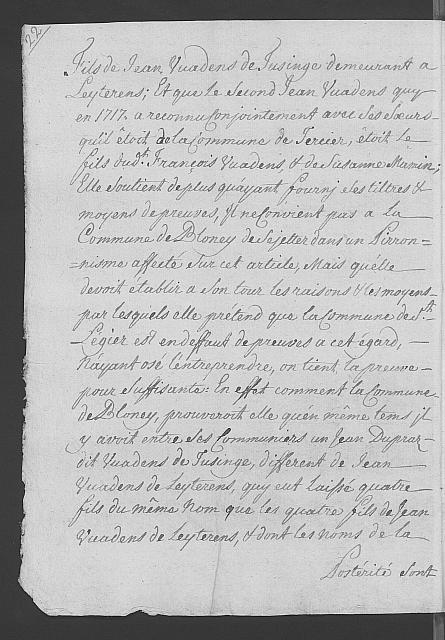 22
Fils de Jean Vuadens de Fusinge demeurant a
Leyterens; Et que le Second Jean Vuadens quy
en 1717. a reconnu Conjointement avec Ses Sœurs
qu'il êtoit de la Commune de Tercier, êtoit le
fils dudt. François Vuadens, & de Susanne Mamin;
Elle Soutient de plus quayant fourny Ses tiltres &
moyens de preuves, Jl ne Convient pas a la
Commune de Bloney de Se jetter dans un Pirron-
=nisme affecté Sur cet article, Mais quélle
devoit établir a Son tour les raisons & les moyens
par lesquels elle prétend que la Commune de St.
Legier est en deffaut de preuves a cet égard,
N'ayant osé l'entreprendre, on tient la preuve
pour Suffisante: En effet comment la Commune
de Bloney, prouveroit elle quen même tems jl
y avoit entre Ses Communiers un Jean Dupraz
dit Vuadens de Fusinge, different de Jean
Vuadens de Leyterens, quy eut laissé quatre
fils du même Nom que les quatre fils de Jean
Vuadens de Leyterens, & dont les noms de la
Postérité Sont